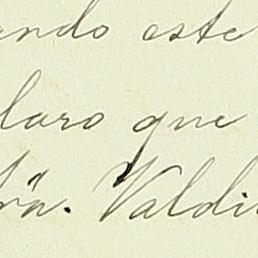 ando este
laro que
rä. Valdi